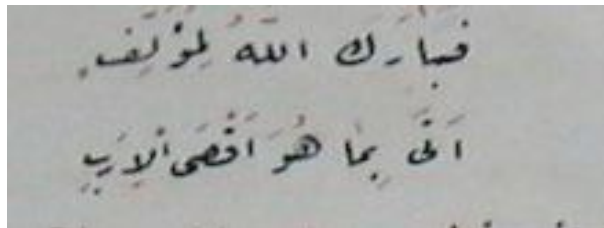 فبارك الله لمؤلف
اتى بما هو اقصى الارب